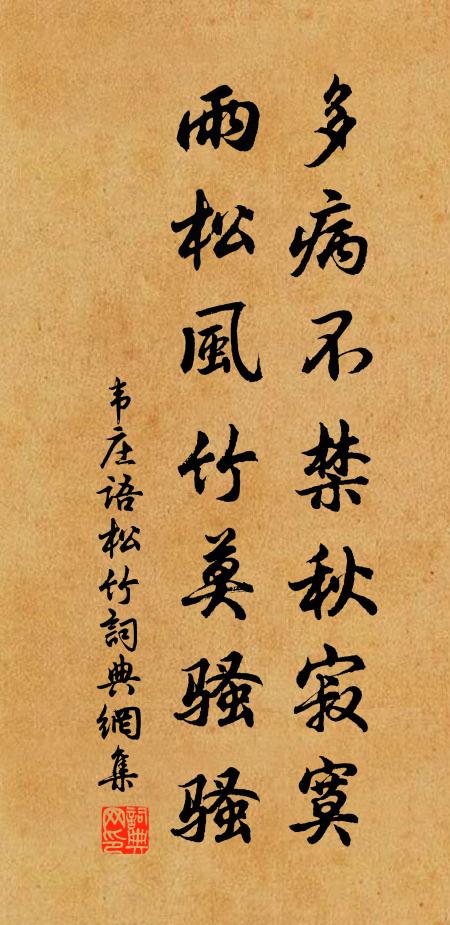 多病不禁秋寂寞
雨松風竹莫騷騷
韦庄語松竹詞典網集
詞典网印